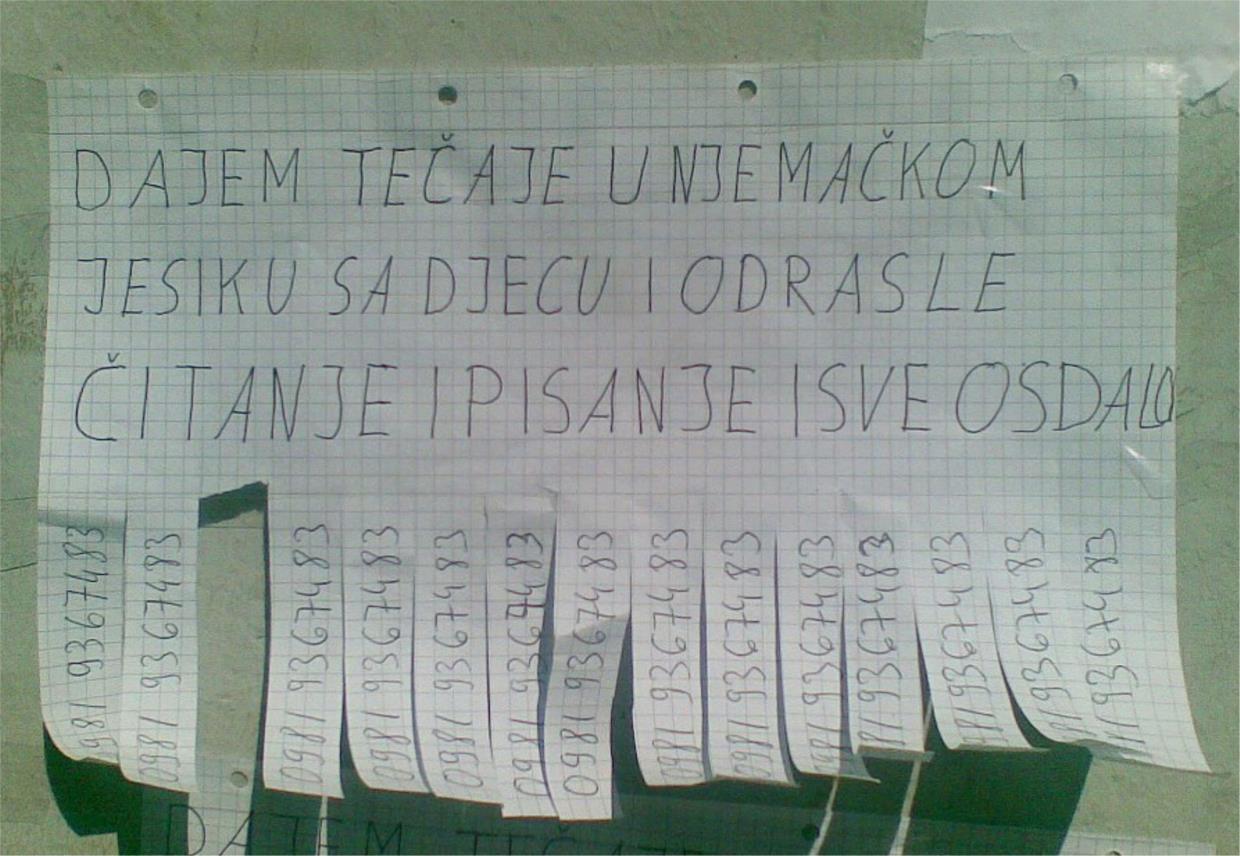 DAJEM TEČAJE U NJEMAČKOM
JESIKU SA DJECU I ODRASLE
ČITANJE I PISANJE I SVE OSDALO
0981 9367483
0981 9367483
0981 9367483
0981 9367483
0981 9367483
0981 9367483
0981 9367483
0981 9367483
0981 9367483
0981 9367483
981 9367483
981 9367483
81 9367483
9367483
DAJEM TEČAJE